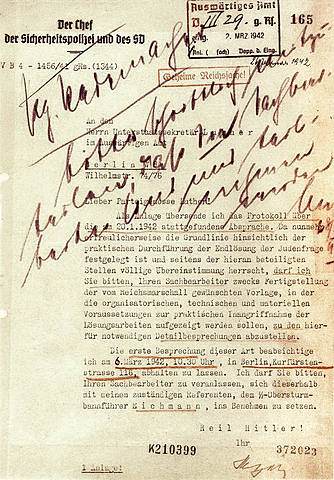 Der Chef
der Sicherheitspolizei und des SD
IV B 4 - 1456/41 gRs. (1344)
Auswärtiges Amt
D. III 29. g. Rs.
2. MRZ. 1942
165
Geheime Reichssache!
1942
Pg. Rademacher
bitte
An den
Herrn Unterstaatssekretär
im Auswärtigen Amt
Berlin
Wilhelmstr. 74/76
Lieber Parteigenosse Luther!
Als Anlage übersende ich das Protokoll über
die am 20.1.1942 stattgefundene Absprache. Da nunmehr
erfreulicherweise die Grundlinie hinsichtlich der
praktischen Durchführung der Endlösung der Judenfrage
festgelegt ist und seitens der hieran beteiligten
Stellen völlige Übereinstimmung herrscht, darf ich
Sie bitten, Ihren Sachbearbeiter zwecks Fertigstellung
der vom Reichsmarschall gewünschten Vorlage, in der
die organisatorischen, technischen und materiellen
Voraussetzungen zur praktischen Inangriffnahme der
Lösungsarbeiten aufgezeigt werden sollen, zu den hier-
für notwendigen Detailbesprechungen abzustellen.
Die erste Besprechung dieser Art beabsichtige
ich am 6. März 1942, 10.30 Uhr, in Berlin, Kurfürsten-
strasse 116, abhalten zu lassen. Ich darf Sie bitten,
Ihren Sachbearbeiter zu veranlassen, sich dieserhalb
mit meinem zuständigen Referenten, dem ᛋᛋ-Obersturm-
bannführer Eichmann, ins Benehmen zu setzen.
Heil Hitler!
Ihr
K210399
372023
1 Anlage!